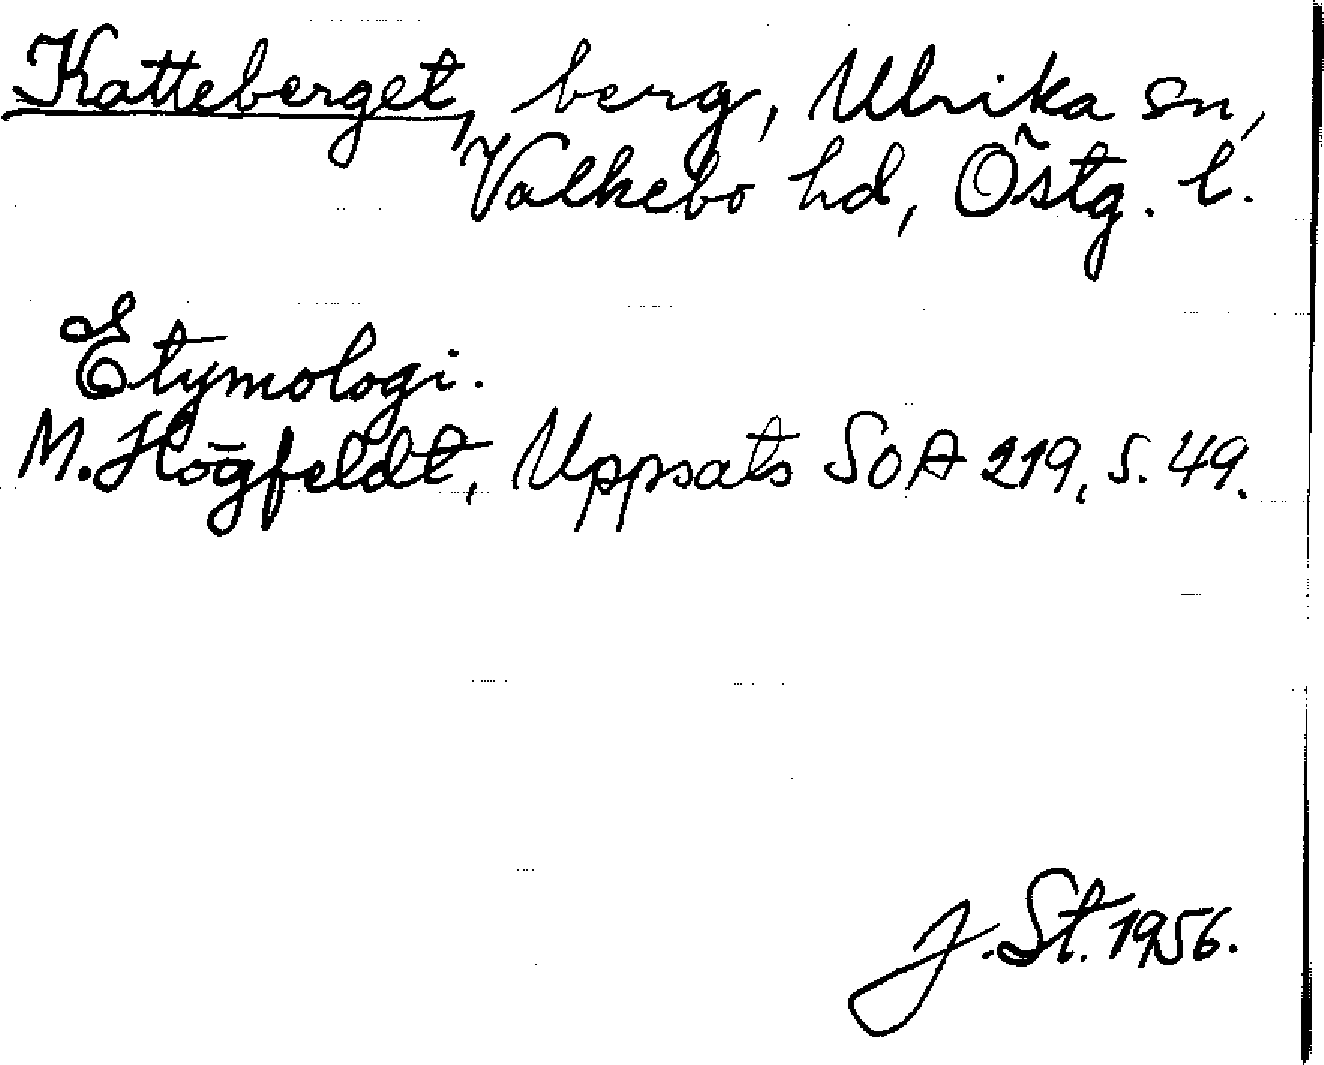 Katteberget, berg, Ulrika sn,
Valkebo hd, Östg. l.
Etymologi.
M. Högfeldt, Uppsats SOA 219, s. 49.
J. St. 1956.